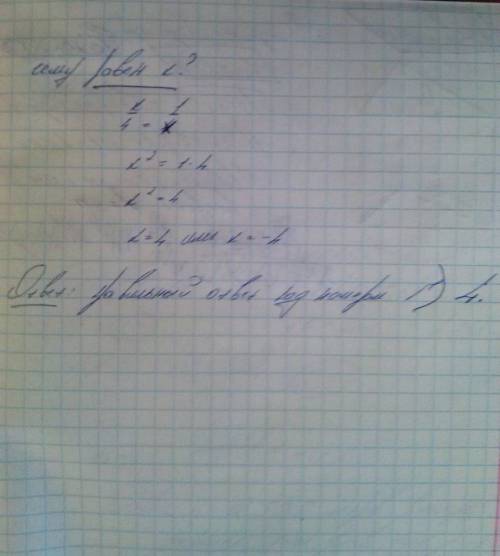 чему равен x?
x/4 = 1/x
x² = 1·4
x² = 4
x = 4 или x = -4
Ответ: правильный ответ под номером 1) 4.